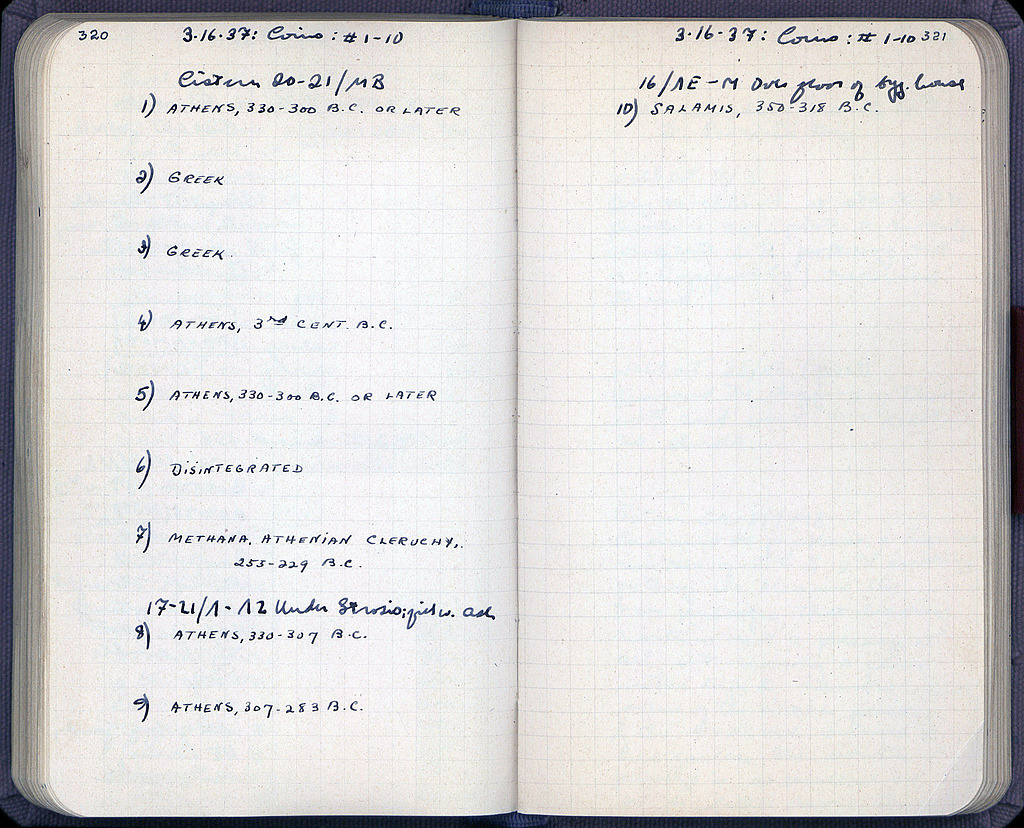 320
3·16·37: Coins: #1-10
Cistern 20-21/MB
1) ATHENS, 330-300 B.C. OR LATER
2) GREEK
3) GREEK.
4) ATHENS, 3rd CENT. B.C.
5) ATHENS, 330-300 B.C. OR LATER
6) DISINTEGRATED
7) METHANA. ATHENIAN CLERUCHY,.
255-229 B.C.
17-21/Λ-ΛΖ Under Strosis;
8) ATHENS, 330-307 B.C.
9) ATHENS, 307-283 B.C.
3·16-37: Coins: # 1-10 321
16/ΛΕ-Μ Over floor of byz. house
10) SALAMIS, 350-318 B.C.